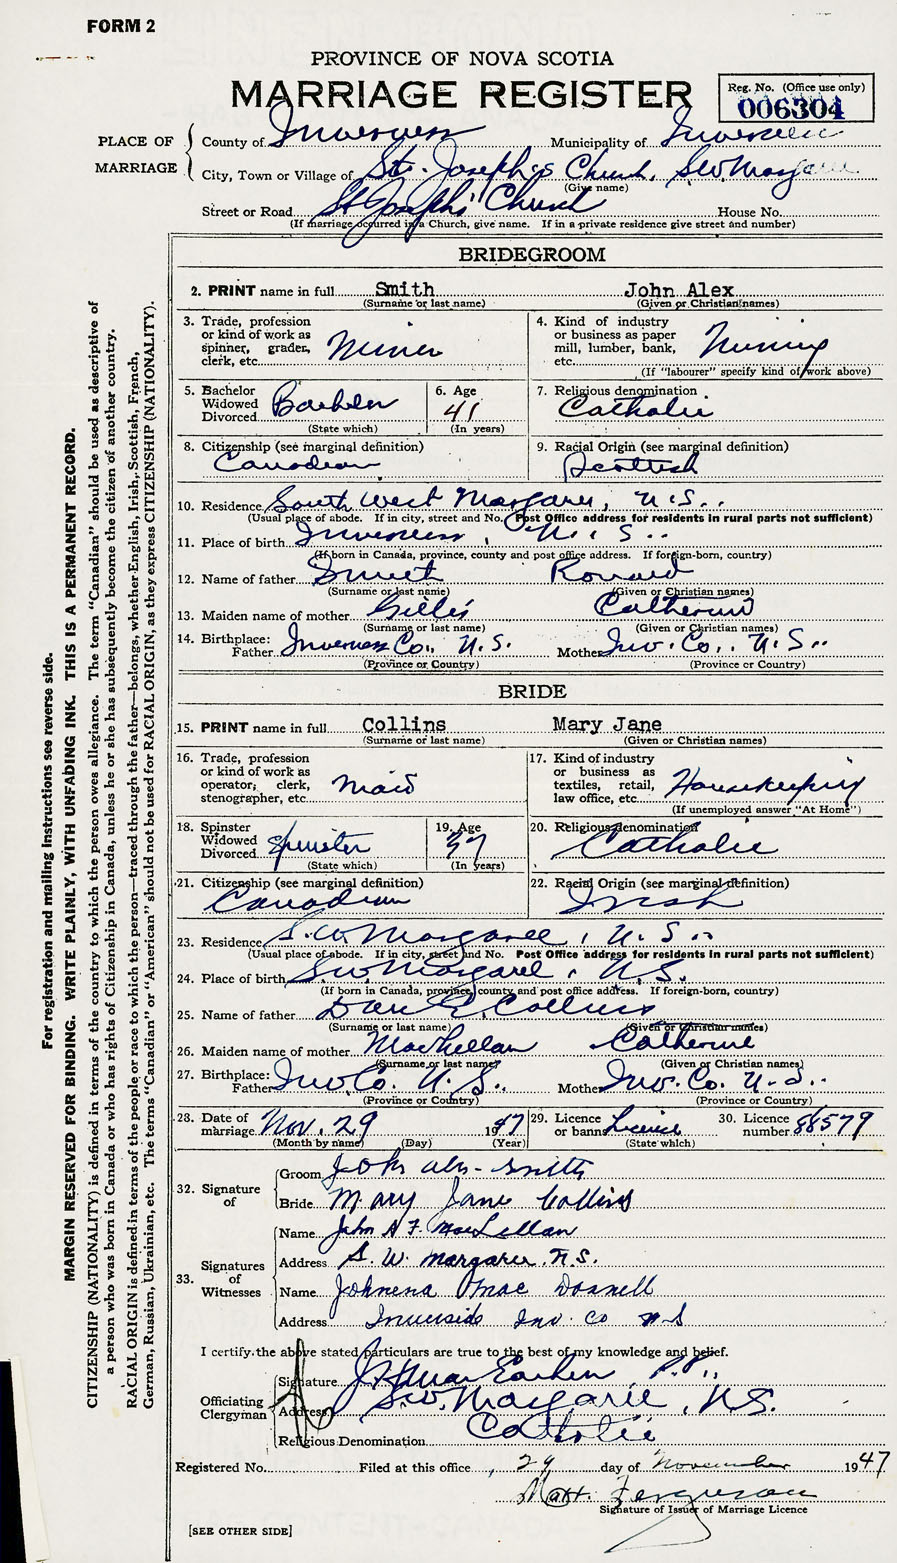 FORM 2
PROVINCE OF NOVA SCOTIA
MARRIAGE REGISTER
Reg. No. (Office use only)
006304
PLACE OF MARRIAGE
County of Inverness Municipality of Inverness
City, Town or Village of St. Joseph's Church, S.W. Margaree
(Give name)
Street or Road St Joseph's Church House No.
(If marriage occurred in a Church, give name. If in a private residence give street and number)
BRIDEGROOM
2. PRINT name in full Smith John Alex
(Surname or last name) (Given or Christian names)
3. Trade, profession or kind of work as spinner, grader, clerk, etc. Miner
4. Kind of industry or business as paper mill, lumber, bank, etc. Mining
(If "labourer" specify kind of work above)
5. Bachelor Widowed Divorced Bachelor
(State which)
6. Age 41
(In years)
7. Religious denomination Catholic
8. Citizenship (see marginal definition) Canadian
9. Racial Origin (see marginal definition) Scottish
10. Residence South West Margaree, N.S.
(Usual place of abode. If in city, street and No. Post Office address for residents in rural parts not sufficient)
11. Place of birth Inverness, N.S.
(If born in Canada, province, county and post office address. If foreign-born, country)
12. Name of father Smith Ronald
(Surname or last name) (Given or Christian names)
13. Maiden name of mother Gillis Catherine
(Surname or last name) (Given or Christian names)
14. Birthplace: Father Inverness Co., N.S. Mother Inv. Co., N.S.
(Province or Country) (Province or Country)
BRIDE
15. PRINT name in full Collins Mary Jane
(Surname or last name) (Given or Christian names)
16. Trade, profession or kind of work as operator, clerk, stenographer, etc. Maid
17. Kind of industry or business as textiles, retail, law office, etc. Housekeeping
(If unemployed answer "At Home")
18. Spinster Widowed Divorced Spinster
(State which)
19. Age
(In years)
20. Religious denomination Catholic
21. Citizenship (see marginal definition) Canadian
22. Racial Origin (see marginal definition) Irish
23. Residence S.W. Margaree, N.S.
(Usual place of abode. If in city, street and No. Post Office address for residents in rural parts not sufficient)
24. Place of birth S.W. Margaree, N.S.
(If born in Canada, province, county and post office address. If foreign-born, country)
25. Name of father Dan E. Collins
(Surname or last name) (Given or Christian names)
26. Maiden name of mother MacLellan Catherine
(Surname or last name) (Given or Christian names)
27. Birthplace: Father Inv Co. N.S. Mother Inv. Co. N.S.
(Province or Country) (Province or Country)
28. Date of marriage Nov. 29 1947
(Month by name) (Day) (Year)
29. Licence or banns Licence
(State which)
30. Licence number 88579
32. Signature of
Groom John Alex Smith
Bride Mary Jane Collins
33. Signatures of Witnesses
Name John A F MacLellan
Address S. W. Margaree. N.S.
Name Johnena MacDonnell
Address Inverside Inv. Co N.S
I certify the above stated particulars are true to the best of my knowledge and belief.
Officiating Clergyman
Signature MacEachen P.P.
Address S.W. Margaree, N.S.
Religious Denomination Catholic
Registered No. Filed at this office, 29 day of November 1947
Matt. Ferguson
Signature of Issuer of Marriage Licence
[SEE OTHER SIDE]
For registration and mailing instructions see reverse side.
MARGIN RESERVED FOR BINDING. WRITE PLAINLY, WITH UNFADING INK. THIS IS A PERMANENT RECORD.
CITIZENSHIP (NATIONALITY) is defined in terms of the country to which the person owes allegiance. The term "Canadian" should be used as descriptive of
a person who was born in Canada or who has rights of Citizenship in Canada, unless he or she has subsequently become the citizen of another country.
RACIAL ORIGIN is defined in terms of the people or race to which the person—traced through the father—belongs, whether English, Irish, Scottish, French,
German, Russian, Ukrainian, etc. The terms "Canadian" or "American" should not be used for RACIAL ORIGIN, as they express CITIZENSHIP (NATIONALITY).